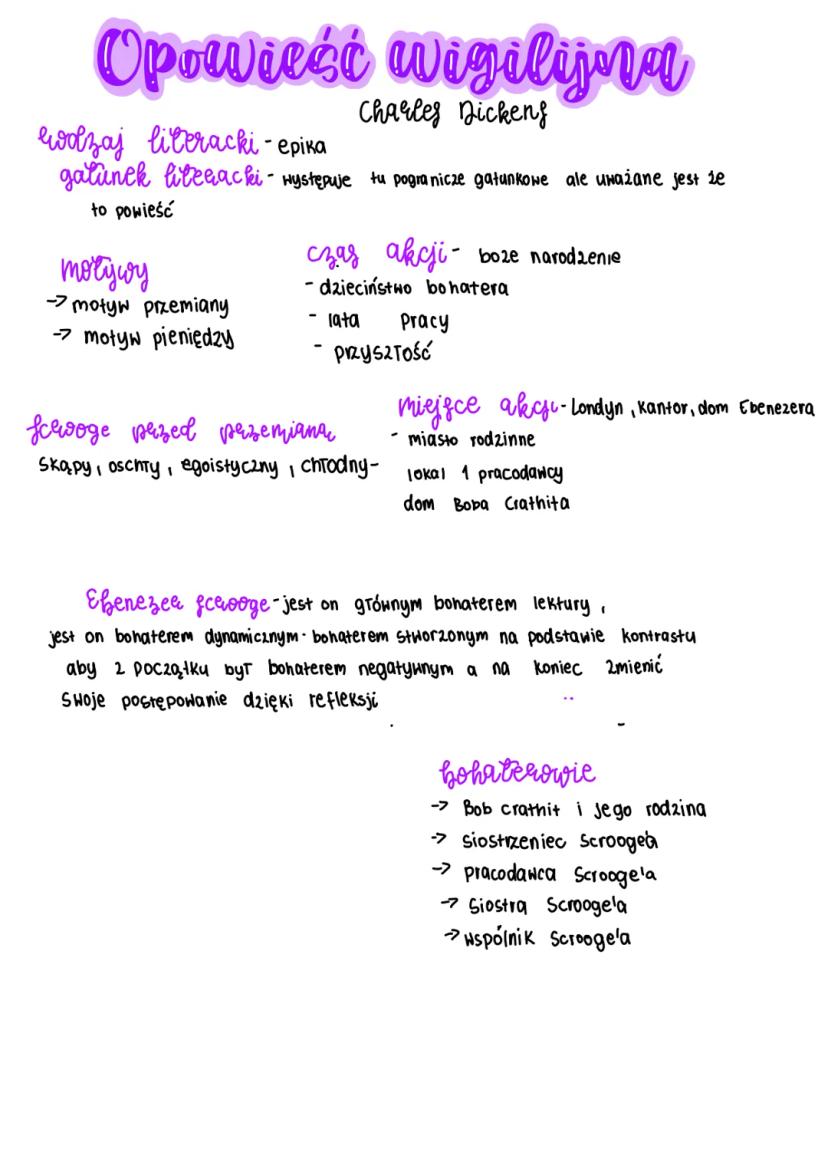 Opowieść wigilijna
Charles Dickens
rodzaj literacki - epika
gatunek literacki - występuje tu pogranicze gatunkowe ale uważane jest że
to powieść
motywy
→ motyw przemiany
→ motyw pieniędzy
czas akcji - boże narodzenie
- dzieciństwo bohatera
- lata pracy
- przyszłość
miejsce akcji - Londyn, kantor, dom Ebenezera
- miasto rodzinne
lokal 1 pracodawcy
dom Boba Crathita
scrooge przed przemianą
skąpy, oschły, egoistyczny, chłodny -
Ebenezer scrooge - jest on głównym bohaterem lektury,
jest on bohaterem dynamicznym - bohaterem stworzonym na podstawie kontrastu
aby z początku był bohaterem negatywnym a na koniec zmienić
swoje postępowanie dzięki refleksji
bohaterowie
→ Bob crathit i jego rodzina
→ siostrzeniec Scrooge'a
→ pracodawca Scrooge'a
→ siostra Scrooge'a
→ wspólnik Scrooge'a